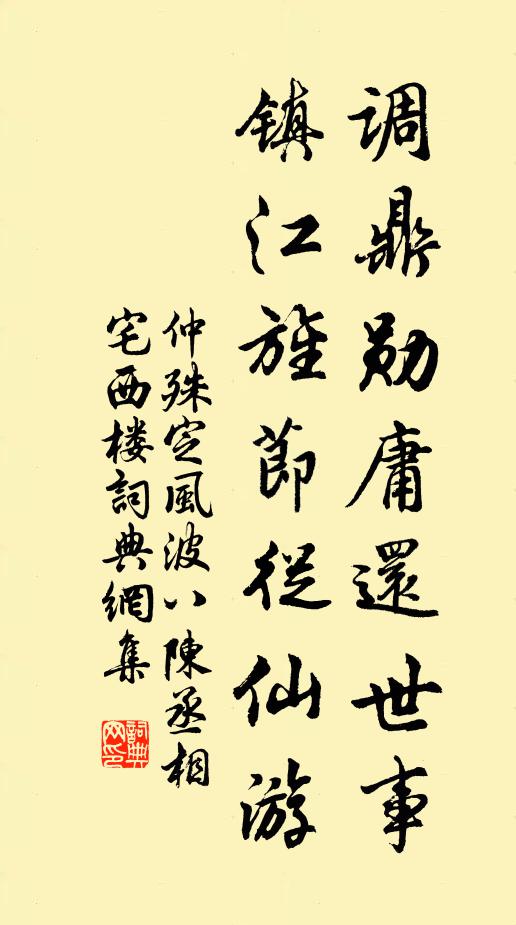 调鼎勋庸還世事
镇江旌節從仙游
仲殊定風波八陳丞相
宅西楼詞典網集
詞典网印